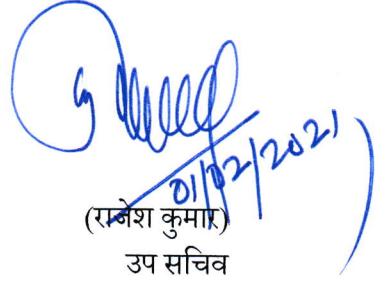 01/02/2021
(राजेश कुमार)
उप सचिव